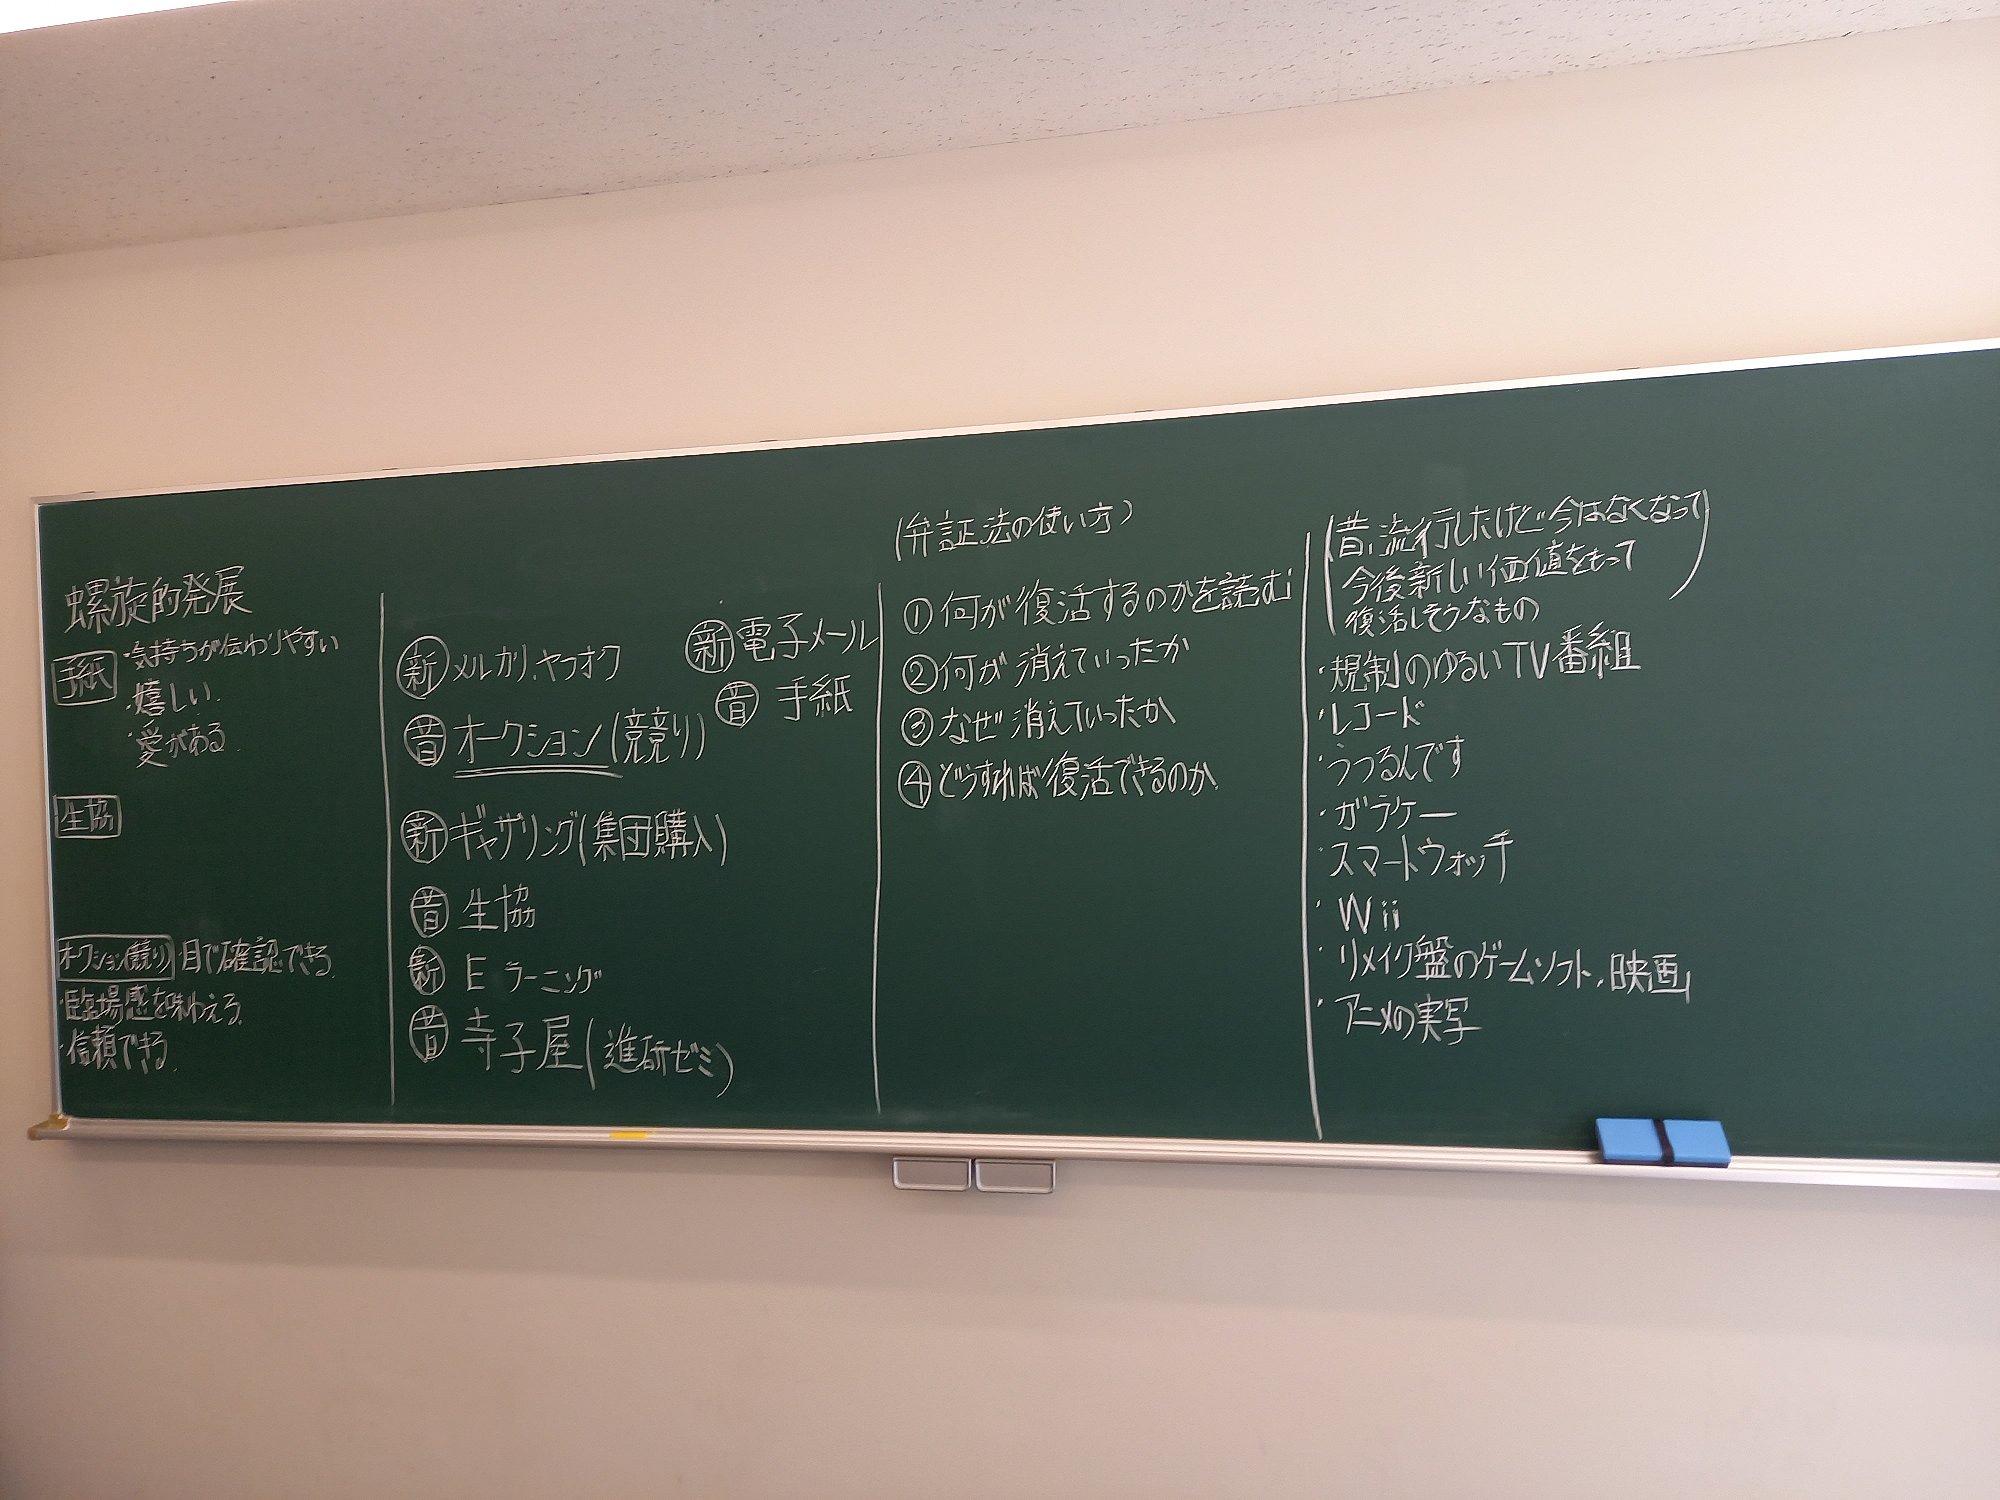 螺旋的発展
手紙 ・気持ちが伝わりやすい
・嬉しい
・愛がある
生協
オークション(競り) ・目で確認できる
・臨場感を味わえる
・信頼できる
新 メルカリ、ヤフオク
昔 オークション(競り)
新 電子メール
昔 手紙
新 ギャザリング(集団購入)
昔 生協
新 E ラーニング
昔 寺子屋(進研ゼミ)
(弁証法の使い方)
①何が復活するのかを読む
②何が消えていったか
③なぜ消えていったか
④どうすれば復活できるのか
(昔、流行したけど今はなくなって
今後新しい価値をもって
復活しそうなもの)
・規制のゆるいTV番組
・レコード
・うつるんです
・ガラケー
・スマートウォッチ
・Wii
・リメイク盤のゲームソフト、映画
・アニメの実写